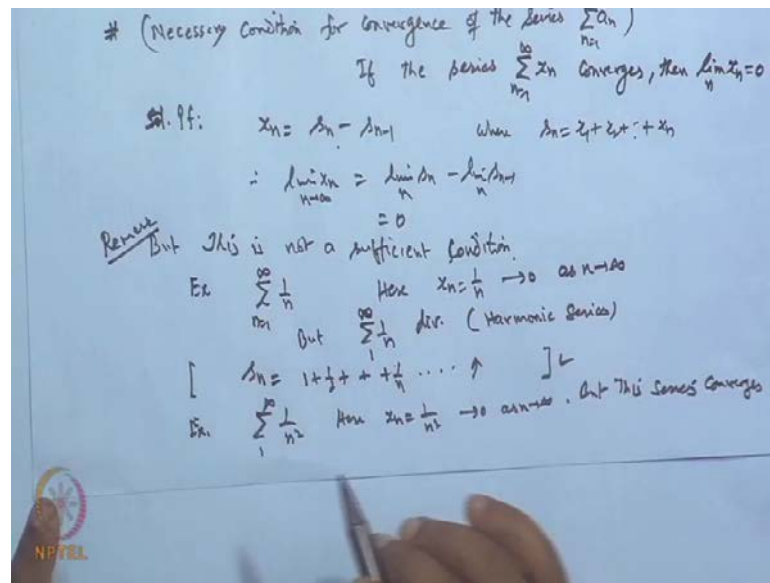 # (Necessary Condition for Convergence of the series ∑_{n=1} a_n)
If the series ∑_{n=1}^∞ x_n Converges, then lim_n x_n = 0
Pf: x_n = s_n - s_{n-1} where s_n = x_1 + x_2 + : + x_n
∴ lim_{n→∞} x_n = lim_n s_n - lim_n s_{n-1}
= 0
Remark But This is not a sufficient Condition.
Ex ∑_{n=1}^∞ 1/n Here x_n = 1/n → 0 as n→∞
But ∑_1^∞ 1/n div. (Harmonic Series)
[ s_n = 1 + 1/2 + + + 1/n .... ↑ ]
Ex. ∑_1^∞ 1/n² Here x_n = 1/n² → 0 as n→∞. But This Series Converges
NPTEL